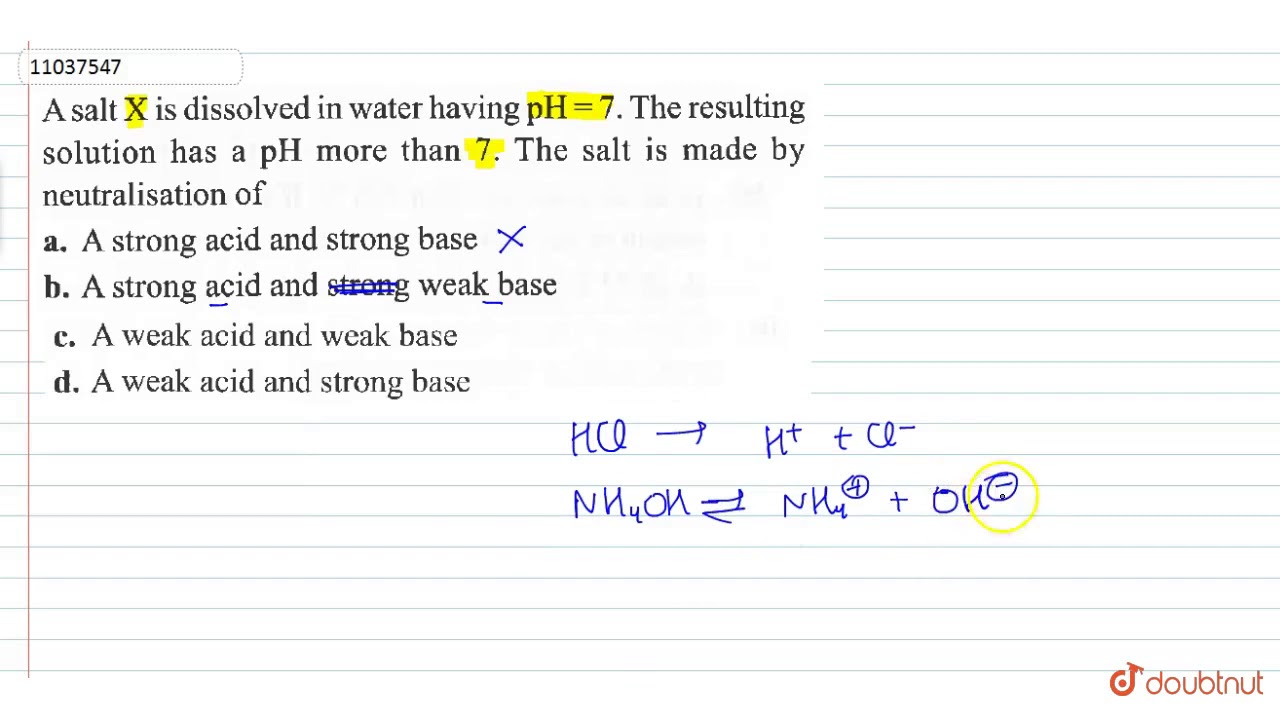 11037547
A salt X is dissolved in water having pH = 7. The resulting
solution has a pH more than 7. The salt is made by
neutralisation of
a. A strong acid and strong base X
b. A strong acid and strong weak base
c. A weak acid and weak base
d. A weak acid and strong base
HCl → H⁺ + Cl⁻
NH₄OH ⇌ NH₄⁺ + OH⁻
doubtnut